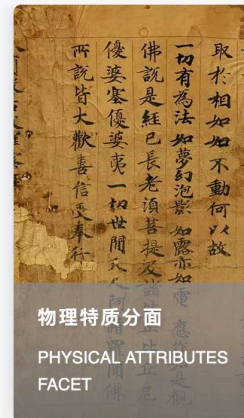 取於相如如不動何以故
一切有為法如夢幻泡影如露亦如電應作如是觀
佛說是經已長老須菩提及諸比丘比丘尼
優婆塞優婆夷一切世間天人阿修羅聞佛
所說皆大歡喜信受奉行
物理特质分面
PHYSICAL ATTRIBUTES
FACET